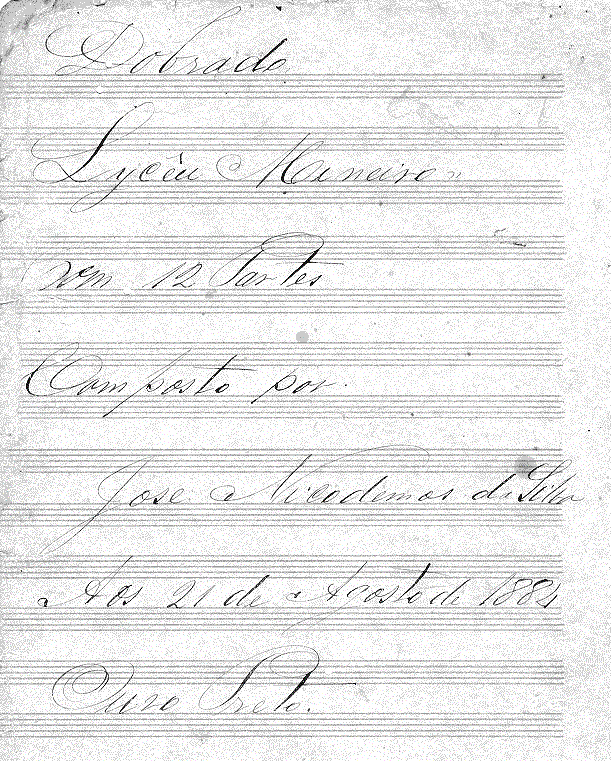 Dobrado
Lycêu Mineiro
com 12 Partes
Composto por
Jose Nicodemos da Silva
Aos 21 de Agosto de 1884
Ouro Preto.